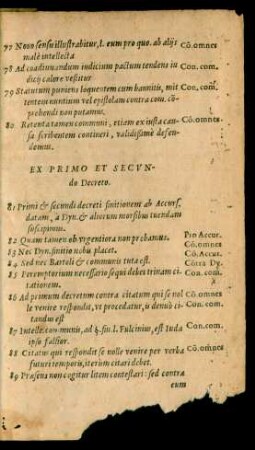 77 Nouo sensu illustrabitur, l. eum pro quo. ab alijs Cō.omnes
malè intellecta
78 Ad coadiuuandum indicium pactum tendens in Con. com.
dicij calore vestitur
79 Statutum puniens loquentem cum bannitis, mit Con. com.
tentem nuntium vel epistolam contra eum. cō-
prehendi non putamus.
80 Retenta tamen communi, etiam ex iusta cau- Cō.omnes
sa scribentem contineri, validissimè defen-
demus.
EX PRIMO ET SECVN-
do Decreto.
81 Primi & secundi decreti finitionem ab Accurs.
datam, à Dyn. & aliorum morsibus tuendam
suscipimus.
82 Quam tamen ob vrgentiora non probamus. Pro Accur.
Cō.omnes
83 Nec Dyn. finitio nobis placet. Cō.Accur.
84 Sed nec Bartoli & communis tuta est. Cōtra Dy.
85 Peremptorium necessario sequi debet trinam ci- Con. com.
tationem.
86 Ad primum decretum contra citatum qui se nol Cō.omnes
le venire respondit, vt procedatur, is denuò ci- Con. com.
tandus est
87 Intelle. communis, ad §. fin. l. Fulcinius, est Iuda Con. com.
ipso falsior.
88 Citatus qui respondit se nolle venire per verba Cō.omnes
futuri temporis, iterùm citari debet.
89 Præsens non cogitur litem contestari: sed contra
eum